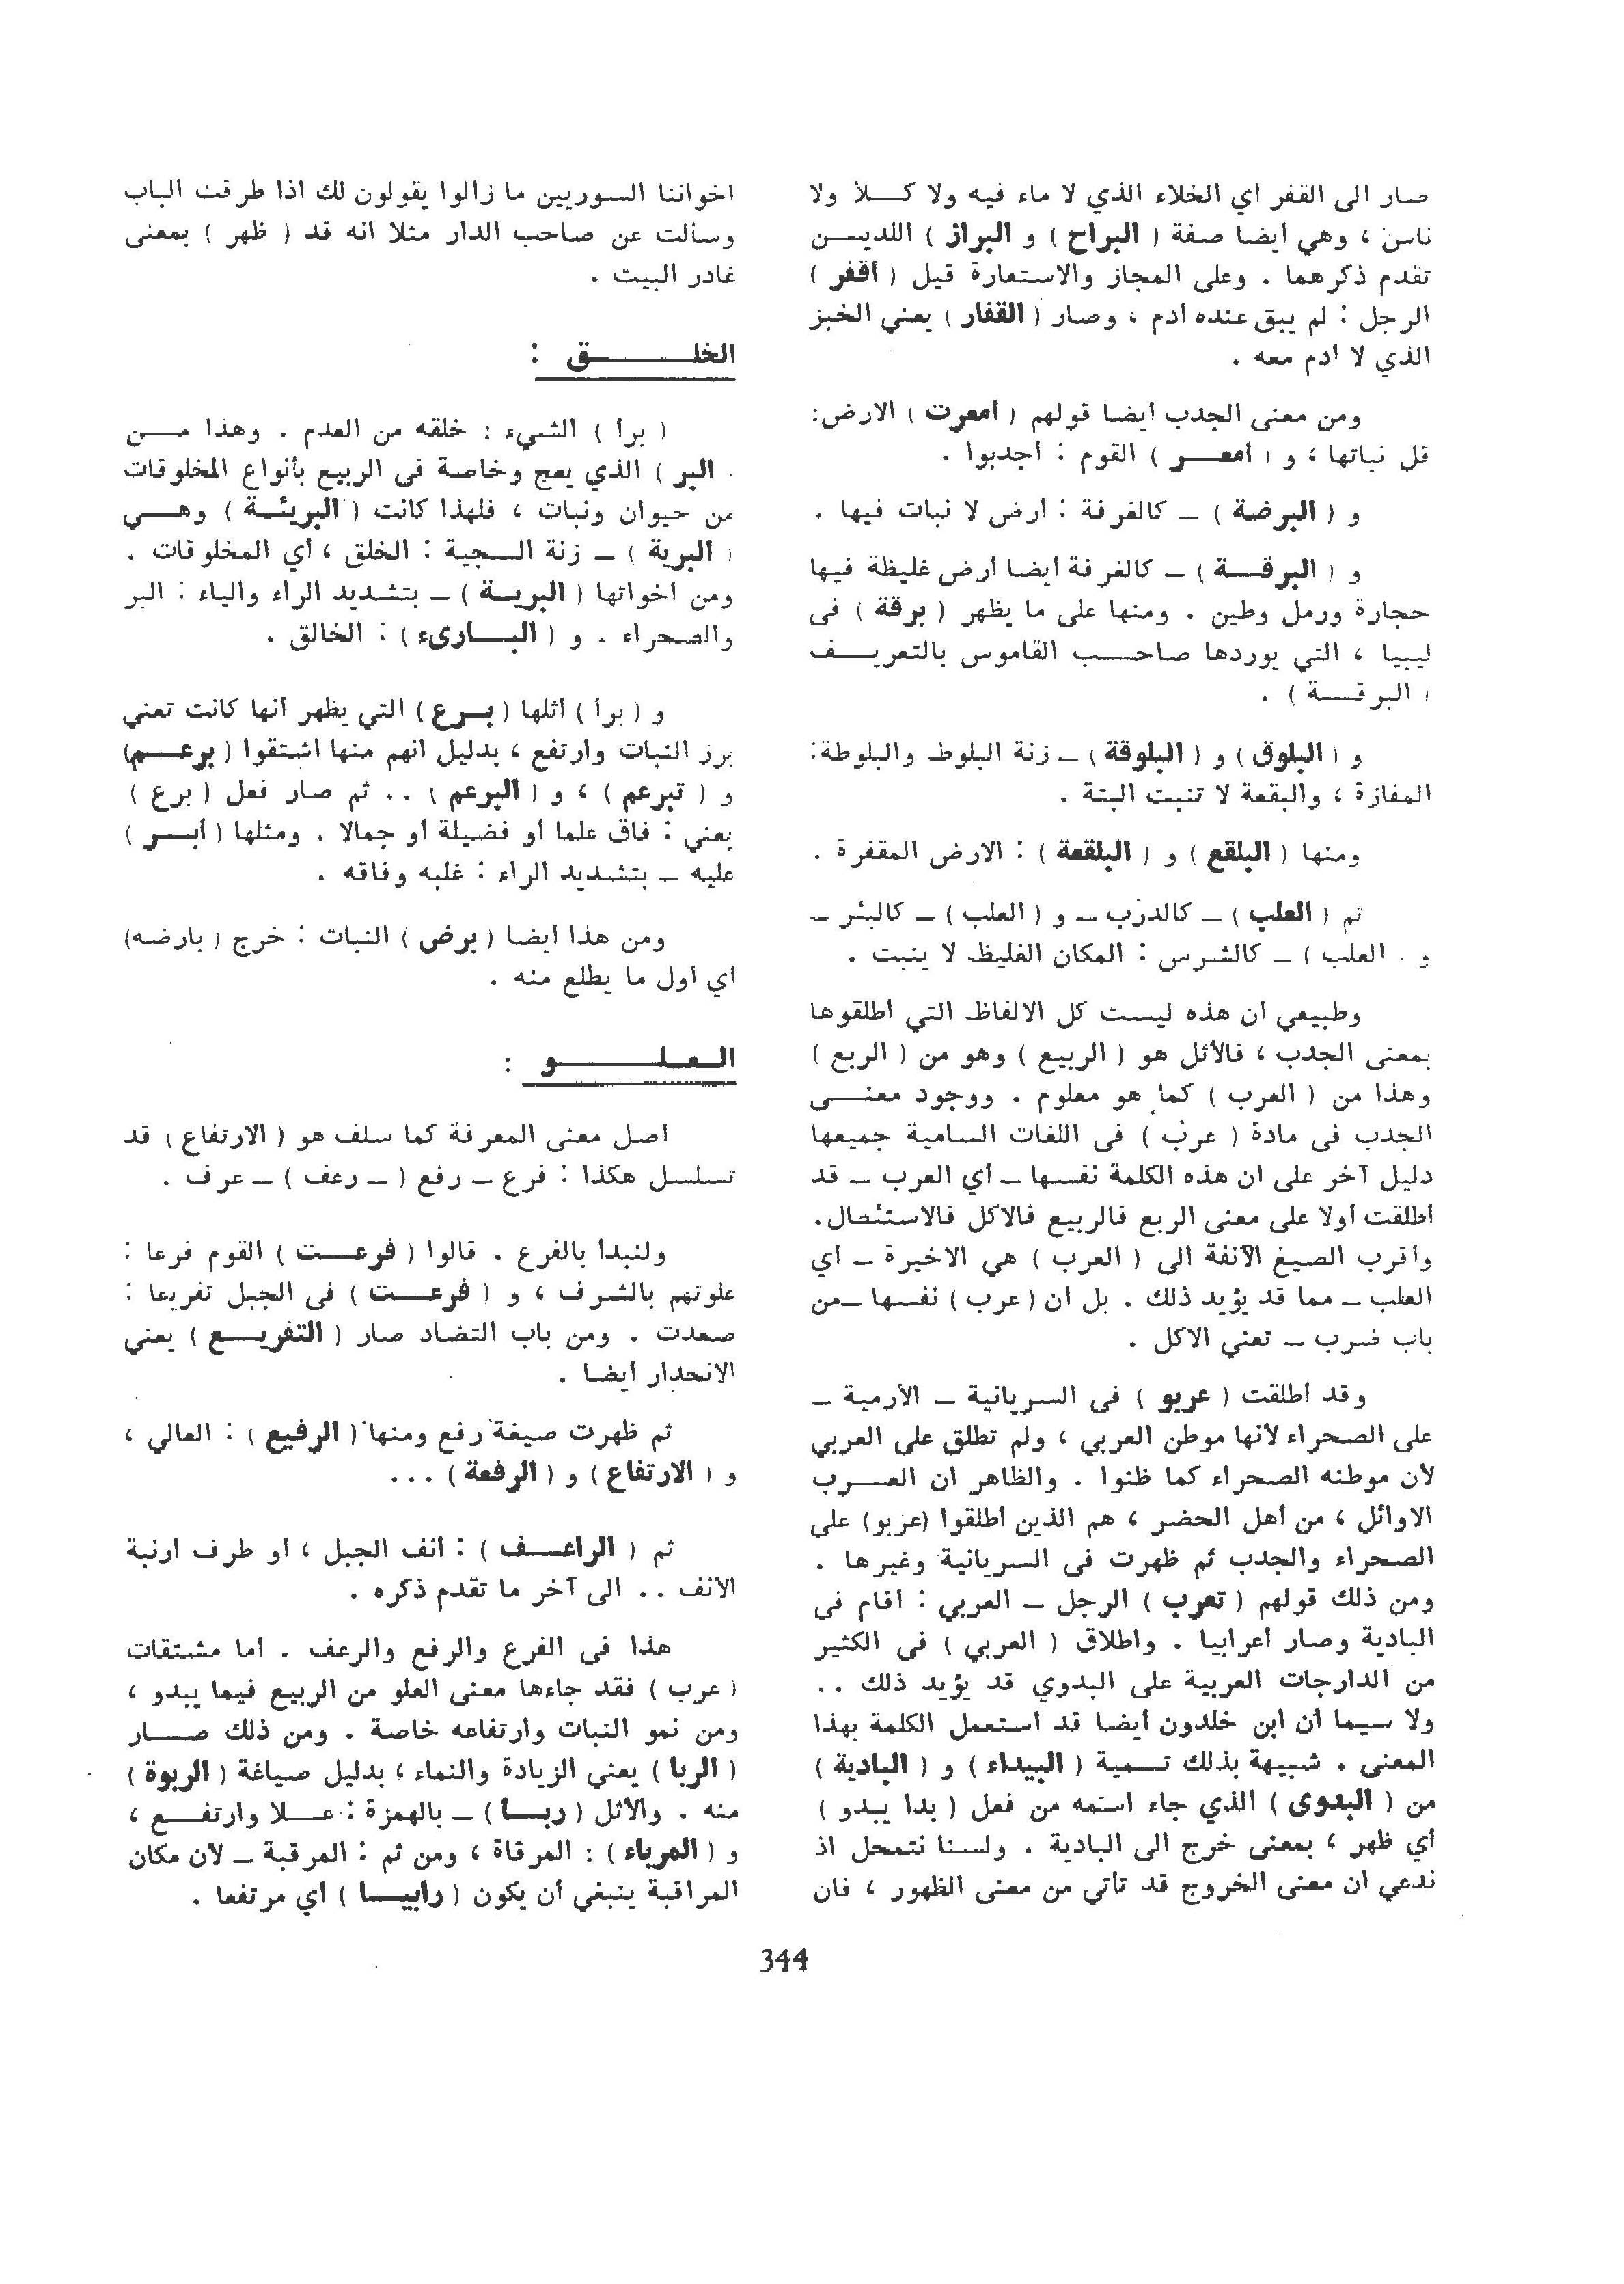 صار الى القفر أي الخلاء الذي لا ماء فيه ولا كـلأ ولا
ناس ، وهي أيضا صفة ( البراح ) و البراز ) اللديـن
تقدم ذكرهما . وعلى المجاز والاستعارة قيل ( أقفر )
الرجل : لم يبق عنده ادم ، وصار ( القفار ) يعني الخبز
الذي لا ادم معه .
ومن معنى الجدب أيضا قولهم ( أمعرت ) الارض:
قل نباتها ، و ( أمعـر ) القوم : أجدبوا .
و ( البرضة ) – كالغرفة : أرض لا نبات فيها .
و ( البرقـة ) – كالغرفة أيضا أرض غليظة فيها
حجارة ورمل وطين . ومنها على ما يظهر ( برقة ) فى
ليبيا ، التي يوردها صاحـب القاموس بالتعريـف
( البرقـة ) .
و ( البلوق ) و ( البلوقة ) – زنة البلوط والبلوطة:
المفازة ، والبقعة لا تنبت البتة .
ومنها ( البلقع ) و ( البلقعة ) : الارض المقفرة .
ثم ( العلب ) – كالدرب – و ( العلب ) – كالبئر –
و . العلب ) – كالشرس : المكان الغليظ لا ينبت .
وطبيعي ان هذه ليست كل الالفاظ التي أطلقوها
بمعنى الجدب ، فالأثل هو ( الربيع ) وهو من ( الربع )
وهذا من ( العرب ) كما هو معلوم . ووجود معنـى
الجدب فى مادة ( عرب ) فى اللغات السامية جميعها
دليل آخر على ان هذه الكلمة نفسها – أي العرب – قد
أطلقت أولا على معنى الربع فالربيع فالاكل فالاستئصال.
وأقرب الصيغ الآنفة الى ( العرب ) هي الاخيرة – أي
العلب – مما قد يؤيد ذلك . بل ان ( عرب ) نفسها –من
باب ضرب – تعني الاكل .
وقد أطلقت ( عربو ) فى السريانية – الأرمية –
على الصحراء لأنها موطن العربي ، ولم تطلق على العربي
لأن موطنه الصحراء كما ظنوا . والظاهر ان العـرب
الاوائل ، من أهل الحضر ، هم الذين أطلقوا (عربو) على
الصحراء والجدب ثم ظهرت فى السريانية وغيرها .
ومن ذلك قولهم ( تعرب ) الرجل – العربي : أقام فى
البادية وصار أعرابيا . واطلاق ( العربي ) فى الكثير
من الدارجات العربية على البدوي قد يؤيد ذلك ..
ولا سيما ان ابن خلدون أيضا قد استعمل الكلمة بهذا
المعنى . شبيهة بذلك تسمية ( البيداء ) و ( البادية )
من ( البدوى ) الذي جاء اسمه من فعل ( بدا يبدو )
أي ظهر ، بمعنى خرج الى البادية . ولسنا نتمحل اذ
ندعي ان معنى الخروج قد تأتي من معنى الظهور ، فان
اخواننا السوريين ما زالوا يقولون لك اذا طرقت الباب
وسألت عن صاحب الدار مثلا انه قد ( ظهر ) بمعنى
غادر البيت .
الخلـق :
( برأ ) الشيء : خلقه من العدم . وهذا مـن
. البر ) الذي يعج وخاصة فى الربيع بأنواع المخلوقات
من حيوان ونبات ، فلهذا كانت ( البريئـة ) وهـي
( البرية ) – زنة السجية : الخلق ، أي المخلوقات .
ومن أخواتها ( البريـة ) – بتشديد الراء والياء : البر
والصحراء . و ( البـارىء ) : الخالق .
و ( برأ ) أثلها ( بـرع ) التي يظهر أنها كانت تعني
برز النبات وارتفع ، بدليل انهم منها اشتقوا ( برعـم)
و ( تبرعم ) ، و ( البرعم ) .. ثم صار فعل ( برع )
يعني : فاق علما أو فضيلة أو جمالا . ومثلها ( أبـر )
عليه – بتشديد الراء : غلبه وفاقه .
ومن هذا أيضا ( برض ) النبات : خرج ( بارضه)
أي أول ما يطلع منه .
العلـو :
أصل معنى المعرفة كما سلف هو ( الارتفاع ) قد
تسلسل هكذا : فرع – رفع ( – رعف ) – عرف .
ولنبدأ بالفرع . قالوا ( فرعـت ) القوم فرعا :
علوتهم بالشرف ، و ( فرعـت ) فى الجبل تفريعا :
صعدت . ومن باب التضاد صار ( التفريـع ) يعني
الانحدار أيضا .
ثم ظهرت صيغة رفع ومنها ( الرفيع ) : العالي ،
و ( الارتفاع ) و ( الرفعة ) ...
ثم ( الراعـف ) : أنف الجبل ، أو طرف ارنبة
الأنف .. الى آخر ما تقدم ذكره .
هذا فى الفرع والرفع والرعف . اما مشتقات
( عرب ) فقد جاءها معنى العلو من الربيع فيما يبدو ،
ومن نمو النبات وارتفاعه خاصة . ومن ذلك صـار
( الربا ) يعني الزيادة والنماء ، بدليل صياغة ( الربوة )
منه . والأثل ( ربـأ ) – بالهمزة : عـلا وارتفـع ،
و ( المرباء ) : المرقاة ، ومن ثم : المرقبة – لان مكان
المراقبة ينبغي أن يكون ( رابيـا ) أي مرتفعا .
344